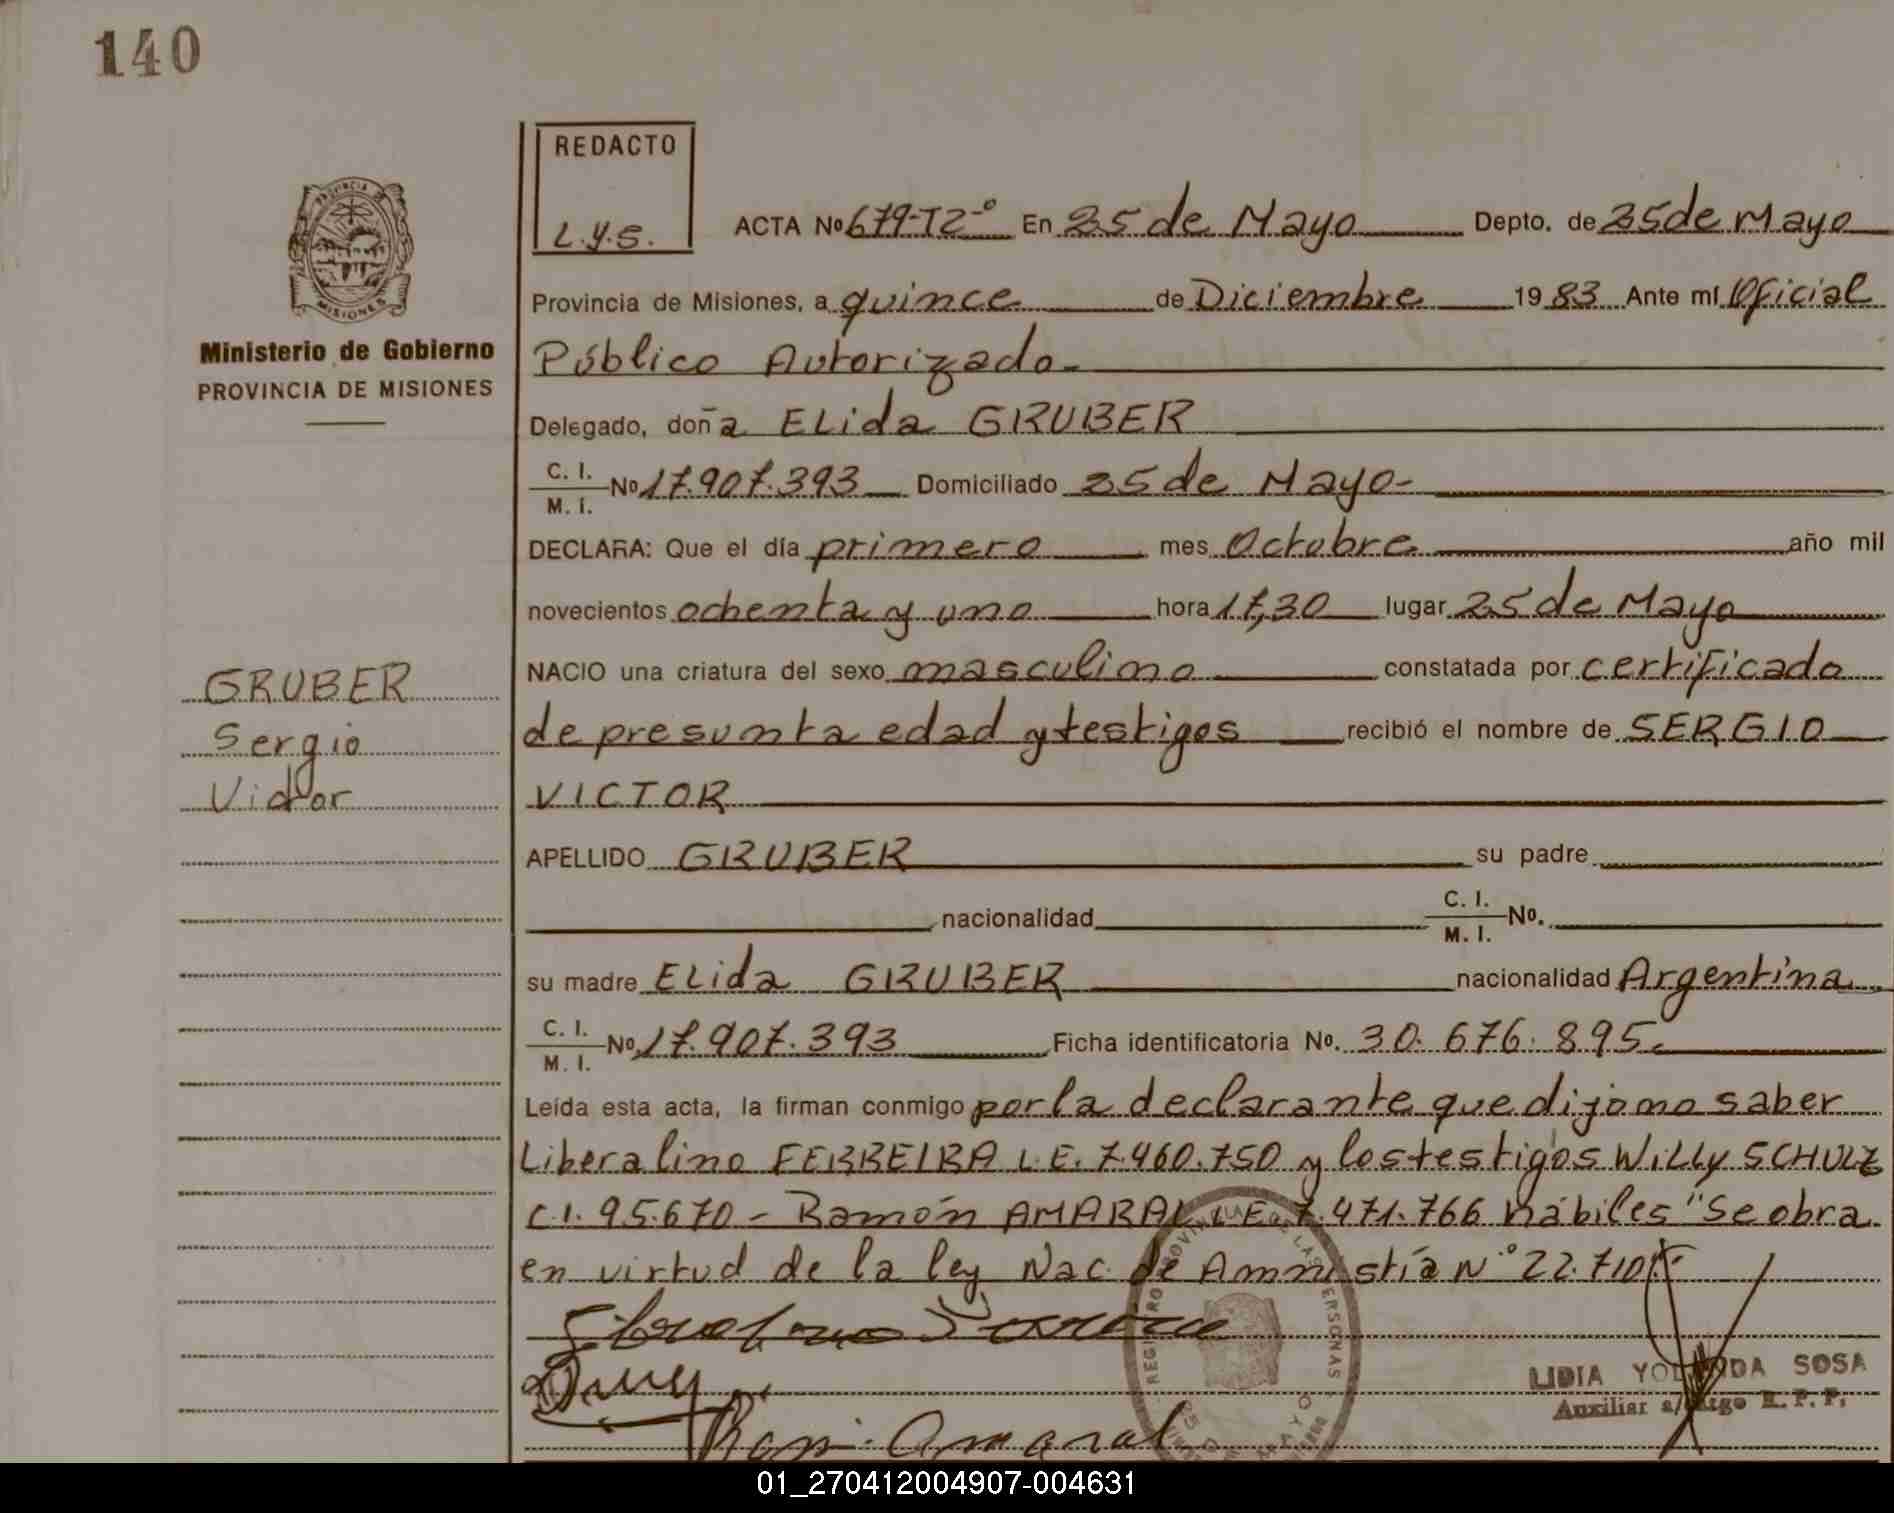 140
REDACTO
L.Y.S.
ACTA No 679-T2-º En 25 de Mayo Depto. de 25 de Mayo
Provincia de Misiones, a quince de Diciembre 1983 Ante mí Oficial
Público Autorizado-
Ministerio de Gobierno
PROVINCIA DE MISIONES
Delegado, doña ELida GRUBER
C. I. / M. I. No 17.907.393 Domiciliado 25 de Mayo-
DECLARA: Que el día primero mes Octubre año mil
novecientos ochenta y uno hora 17,30 lugar 25 de Mayo
NACIO una criatura del sexo masculino constatada por certificado
de presunta edad y testigos recibió el nombre de SERGIO
VICTOR
GRUBER
Sergio
Victor
APELLIDO GRUBER su padre
nacionalidad C. I. / M. I. No.
su madre ELida GRUBER nacionalidad Argentina
C. I. / M. I. No 17.907.393 Ficha identificatoria No. 30.676.895.
Leída esta acta, la firman conmigo por la declarante que dijo no saber
Liberalino FERREIRA L.E. 7.460.750 y los testigos WiLLy SCHULZ
C.I. 95.670 - Ramón AMARAL L.E. 7.471.766 hábiles "Se obra
en virtud de la ley Nac. de Amnistía Nº 22.710
Ramón Amaral
REGISTRO PROVINCIAL DE LAS PERSONAS
LIDIA YOLANDA SOSA
Auxiliar a/cargo R. P. P.
PROVINCIA DE
MISIONES
01_270412004907-004631